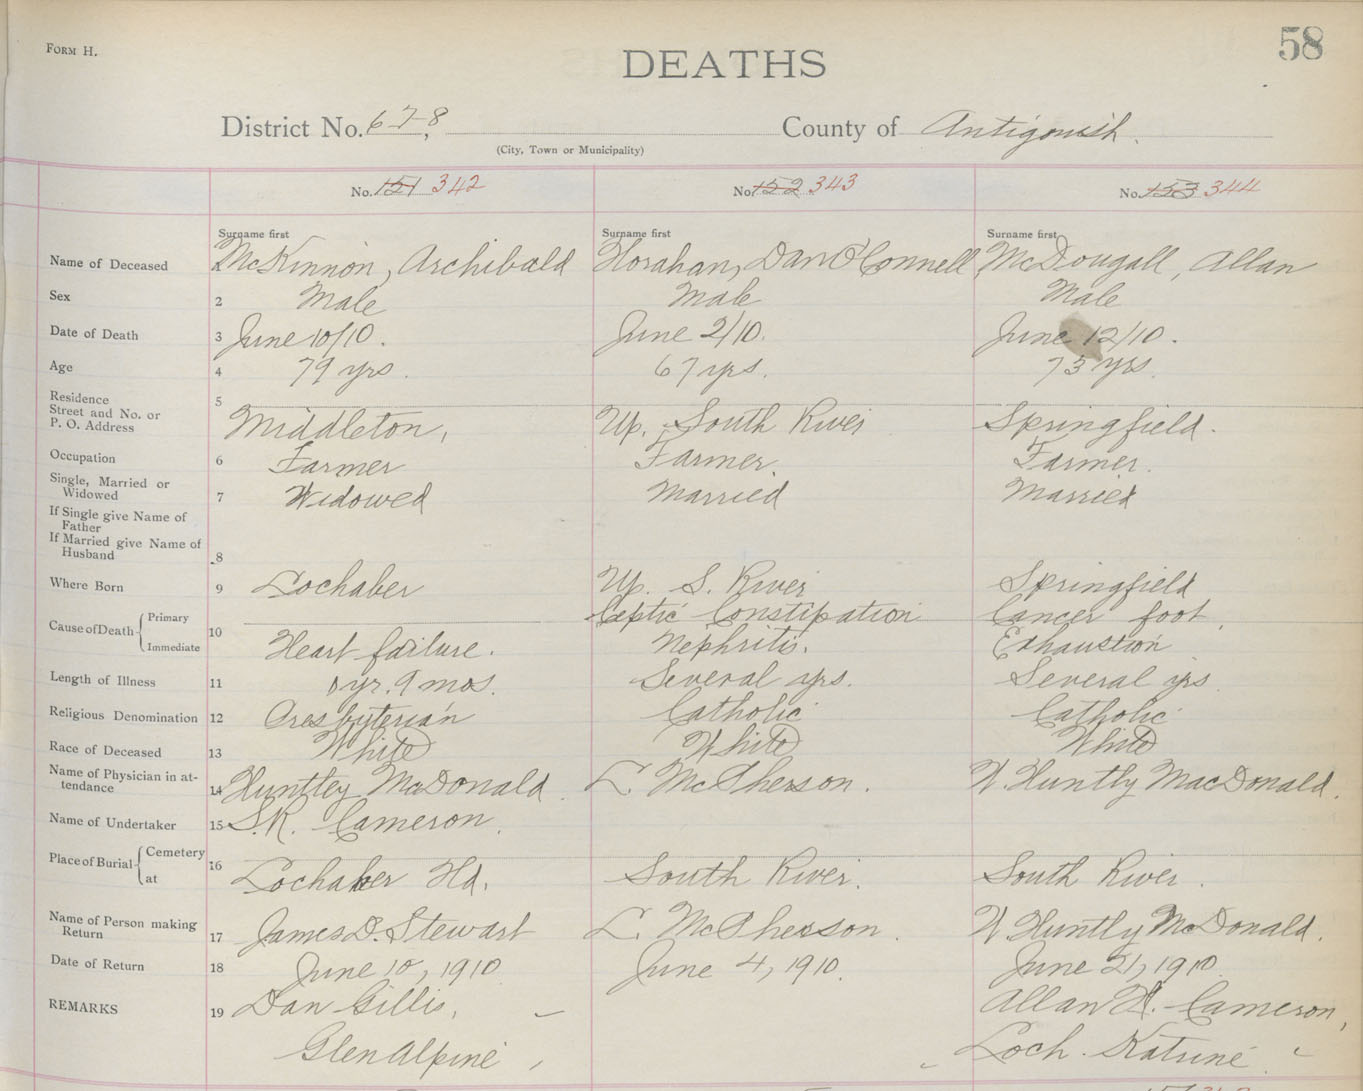 FORM H.
58
DEATHS
District No. 6-7-8 County of Antigonish.
(City, Town or Municipality)
No. 151 342 No. 152 343 No. 153 344
Surname first Surname first Surname first
Name of Deceased McKinnon, Archibald Horahan, Dan O'Connell McDougall, Allan
Sex 2 Male Male Male
Date of Death 3 June 10/10. June 2/10. June 12/10.
Age 4 79 yrs. 67 yrs. 73 yrs.
Residence 5
Street and No. or
P. O. Address Middleton, Up. South River Springfield.
Occupation 6 Farmer Farmer. Farmer.
Single, Married or
Widowed 7 Widowed Married Married
If Single give Name of
Father
If Married give Name of
Husband 8
Where Born 9 Lochaber Up. S. River Springfield
Cause of Death Primary Ceptic Constipation Cancer foot.
10
Immediate Heart failure. Nephritis. Exhaustion
Length of Illness 11 0 yr. 9 mos. Several yrs. Several yrs
Religious Denomination 12 Presbyterian Catholic Catholic
Race of Deceased 13 White White White
Name of Physician in at-
tendance 14 Huntley McDonald. L. McPherson. W. Huntly MacDonald.
Name of Undertaker 15 S.R. Cameron.
Place of Burial Cemetery 16
at Lochaber Hd. South River. South River.
Name of Person making
Return 17 James D. Stewart L. McPherson. W Huntly McDonald.
Date of Return 18 June 10, 1910 June 4, 1910. June 21, 1910
REMARKS 19 Dan Gillis, Allan Cameron,
Glen Alpine Loch. Katrine